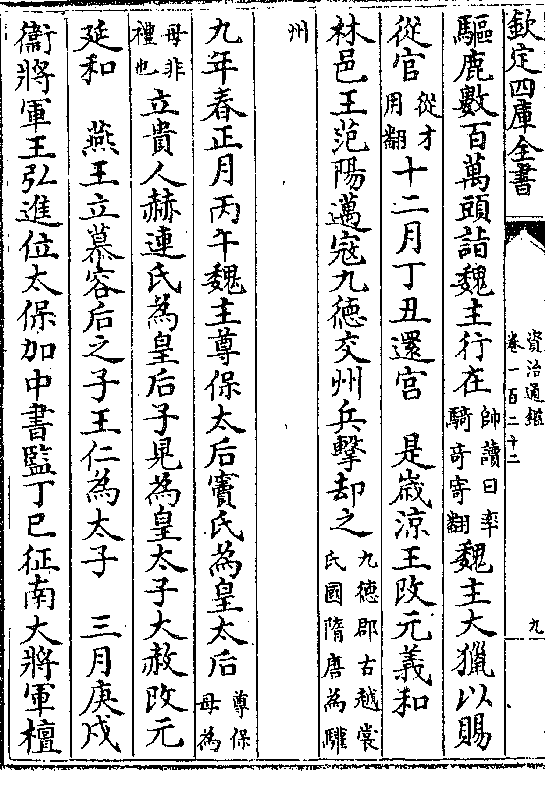 欽定四庫全書
資治通鑑
卷一百二十二
九
驅鹿數百萬頭詣魏主行在帥讀曰率騎奇寄翻魏主大獵以賜
從官從才用翻十二月丁丑還宮　是歲涼王改元義和
林邑王范陽邁寇九德交州兵擊却之九德郡古越裳氏國隋唐為驩
州
九年春正月丙午魏主尊保太后竇氏為皇太后尊保母為
母非禮也立貴人赫連氏為皇后子晃為皇太子大赦改元
延和　燕王立慕容后之子王仁為太子　三月庚戌
衞將軍王弘進位太保加中書監丁巳征南大將軍檀